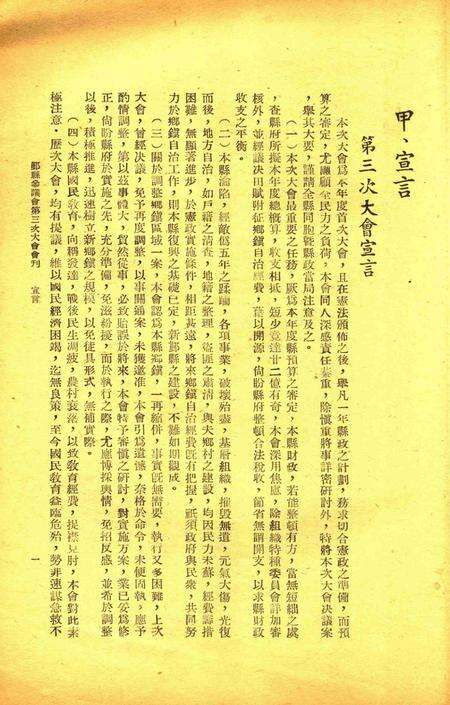 甲、宣言
第三次大會宣言
本次大會為本年度首次大會，且在憲法頒佈之後，舉凡一年縣政之計劃，務求切合憲政之準備，而預
算之審定，尤應顧全民力之負荷，本會同人深感責任綦重，除慎重將事詳密研討外，特將本次大會決議案
，舉其大要，謹請全縣同胞暨縣政當局注意及之。
（一）本次大會最重要之任務，厥為本年度縣預算之審定，本縣財政，若能整頓有方，當無短絀之處
，查縣府所擬本年度總概算，收支相抵，短少竟達廿二億有奇，本會深用焦慮，除組織特種委員會詳加審
核外，並經議決田賦附征鄉鎮自治經費，藉以開源，尚盼縣府整頓合法稅收，節省無謂開支，以求縣財政
收支之平衡。
（二）本縣淪陷，經敵偽五年之蹂躪，各項事業，破壞殆盡，基層組織，摧毀無遺，元氣大傷，光復
而後，地方自治，如戶籍之清查，地籍之整理，盜匪之肅清，與夫鄉村之建設，均因民力未蘇，經費籌措
困難，無顯著進步，於憲政實施條件，相距甚遠，將來鄉鎮自治經費既有把握，祇須政府與民衆，共同努
力於鄉鎮自治工作，則本縣復興之基礎已定，新鄞縣之建設，不難如期觀成。
（三）關於調整鄉鎮區域一案，本會認為本縣鄉鎮，一再縮併，事實既無需要，執行又多困難，上次
大會，曾經決議，免予再度調整，以事關通案，未獲邀准，本會引為遺憾，奈格於命令，未便固執，應予
酌情調整，第以茲事體大，貿然從事，必致貽誤於將來，本會特予審慎之研討，對實施方案，業已妥為修
正，尚盼縣府於實施之先，充分準備，免滋紛擾，而於執行之際，尤應博採輿情，免招反感，並希於調整
以後，積極推進，迅速樹立新鄉鎮之規模，以免徒具形式，無補實際。
（四）本縣國民教育，向稱發達，戰後民生凋疲，農村衰落，以致教育經費，捉襟見肘，本會對此素
極注意，歷次大會，均有提議，維以國民經濟困竭，迄無良策，至今國民教育益臨危殆，勢非速謀急救不
鄞縣參議會第三次大會會刊　宣言
一